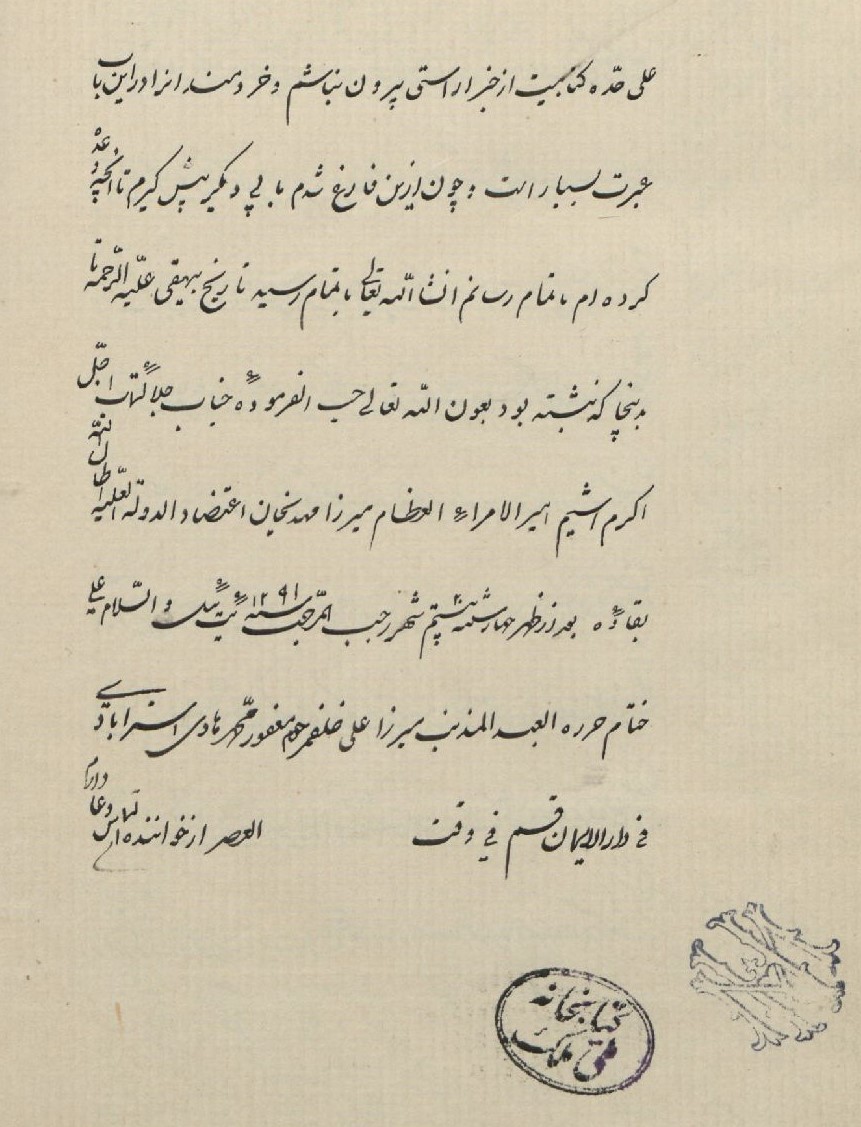 علی حدّه کتابیست از خبر ار استی بیرون نباشم و خردمندانرا در این باب
عبرت بسیار است و چون ازین فارغ شدم بابی دیگر پیش گیرم تا آنچه وعده
کرده ام بتمام رسانم انشاء اللّه تعالی بتمام رسید تاریخ بیهقی علیه الرّحمه تا
بدینجا که نبشته بود بعون اللّه تعالی حسب الفرموده جناب جلالتمآب اجلّ
اکرم اشیم امیر الامراء العظام میرزا مهدیخان اعتضاد الدوله العلیّه اطال اللّه
بقاءه بعد از ظهر چهارشنبه بیستم شهر رجب المرجّب سنه ۱۲۹۱ و السّلام علی
ختام حرره العبد المذنب میرزا علی خلف مرحوم مغفور محمّد هادی استرابادی
فی دار الایمان قم فی وقت العصر از خواننده التماس دعا دارم
کتابخانه
ملی ملک